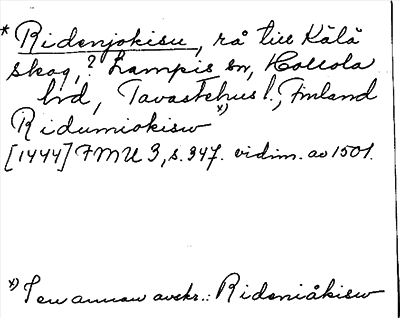 * Ridenjokisu, rå till Kälä
skog, ? Lampis sn, Hollola
hrd, Tavastehus l., Finland
Ridumiokisw x)
[1444] FMU 3, s. 347. vidim. av 1501.
x) I en annan avskr.: Rideniåkisw